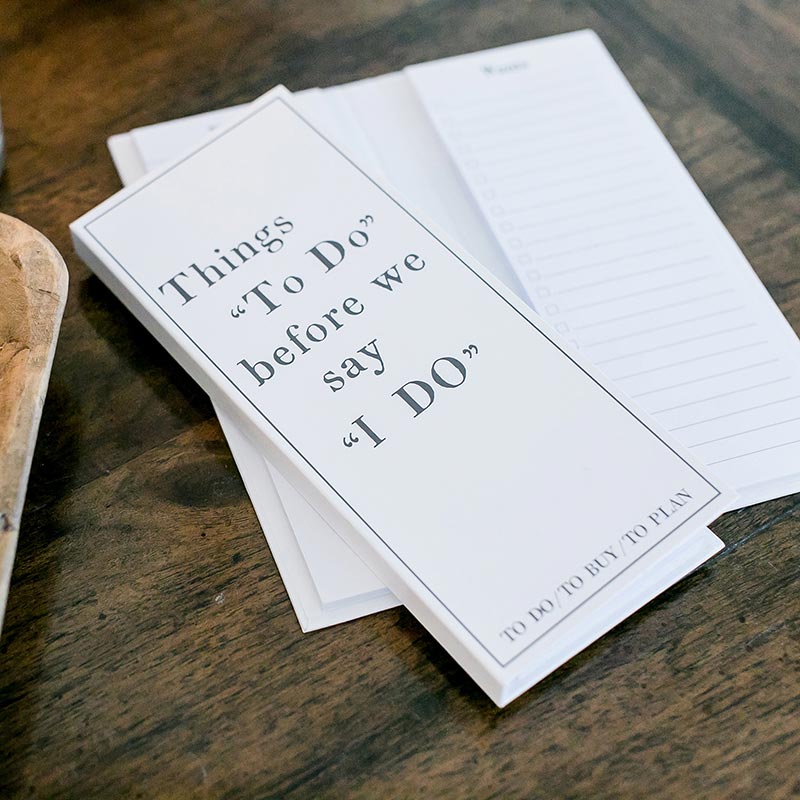 Things
“To Do”
before we
say
“I DO”
TO DO/TO BUY/TO PLAN